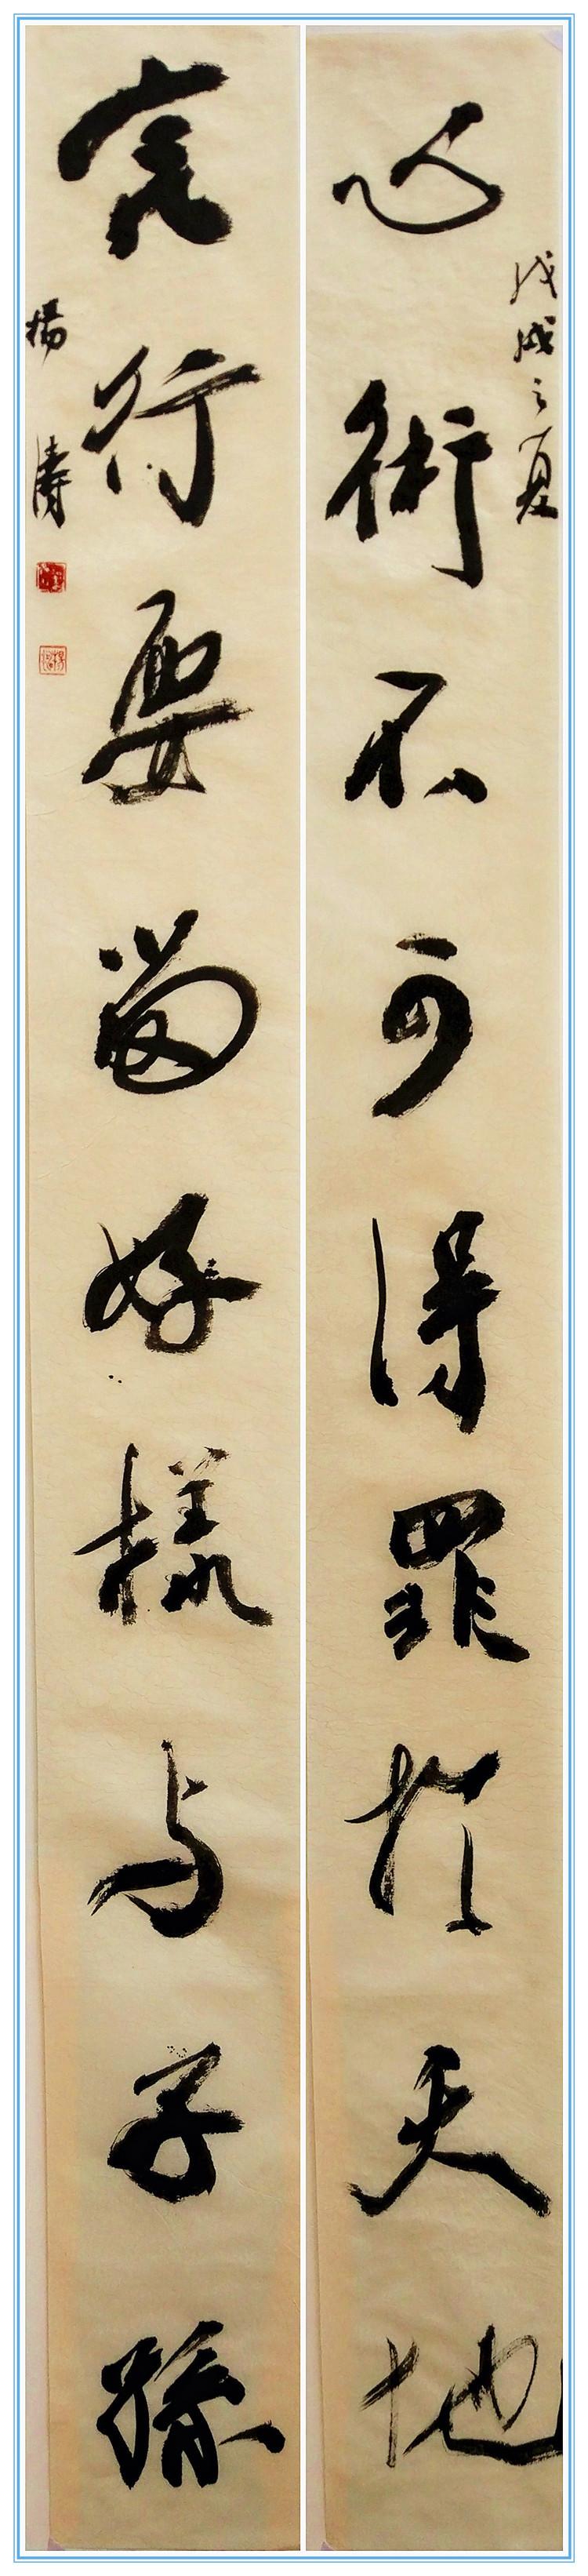 戊戌之夏
心術不可得罪於天地
言行要留好樣与子孫
楊濤